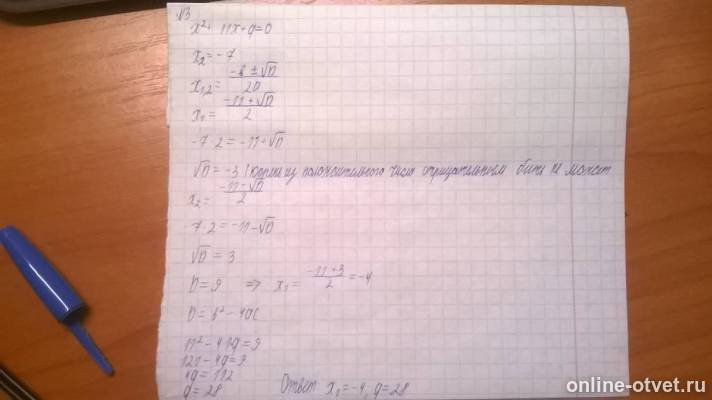 √3
x²+ 11x+q=0
x₂=-7
x₁,₂= -b ± √D / 2a
x₁= -11+√D / 2
-7·2=-11+√D
√D = -3 (корень из положительного числа отрицательным быть не может
x₂= -11-√D / 2
-7·2=-11-√D
√D = 3
D = 9 => x₁= -11+3 / 2 =-4
D = b²-4ac
11²-4·1q=9
121-4q=9
4q=112
q=28 Ответ x₁=-4, q=28
online-otvet.ru